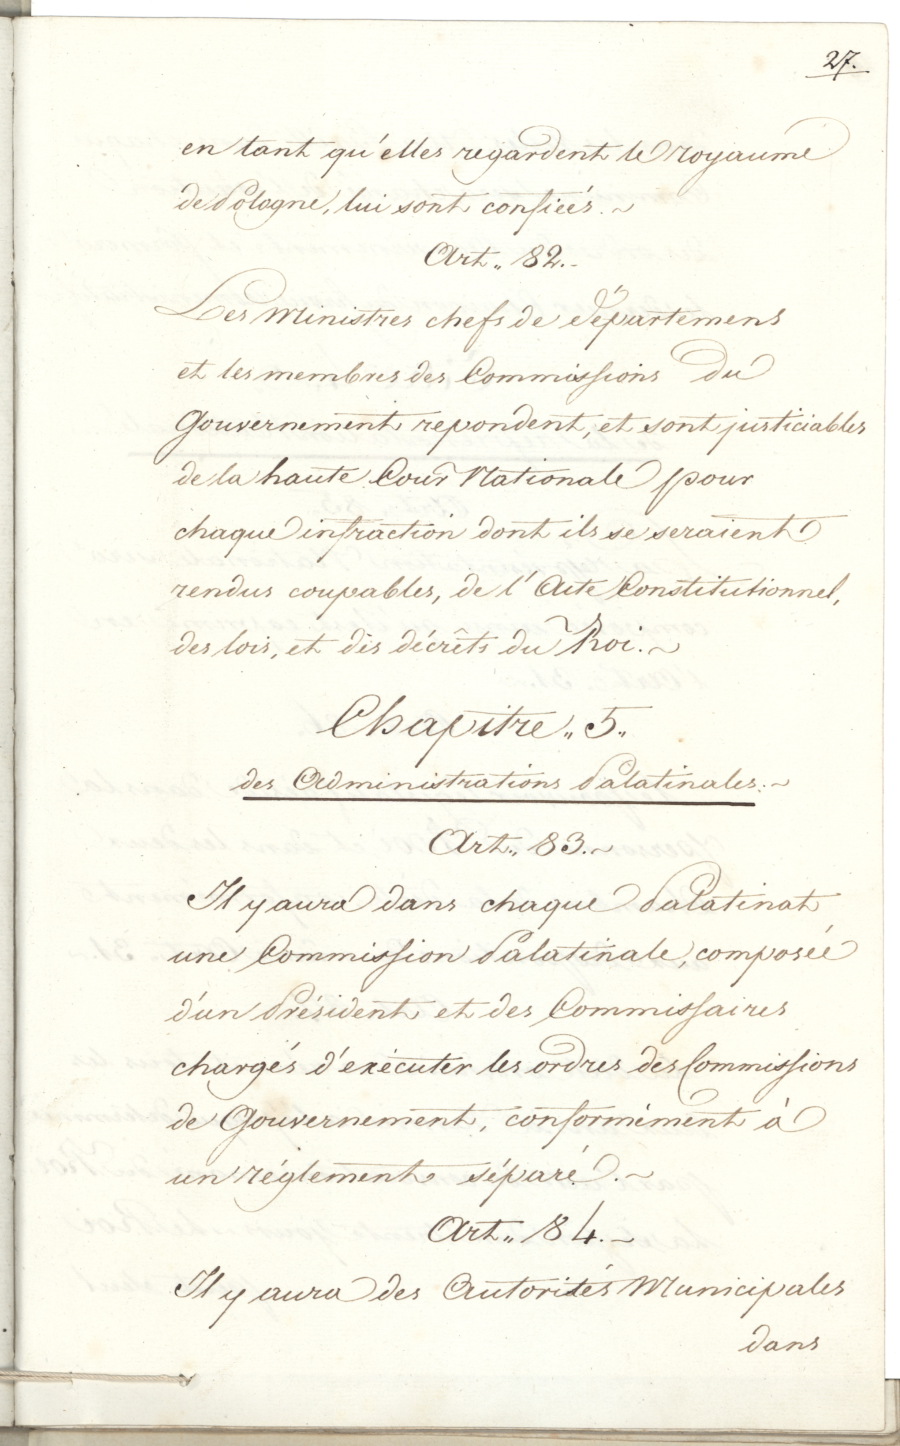 27.
en tant qu'elles regardent le royaume
de Pologne, lui sont confiées. ~
Art. 82.
Les Ministres chefs de départemens
et les membres des Commissions du
Gouvernement repondent, et sont justiciables
de la haute Cour Nationale pour
chaque infraction dont ils se seraient
rendus coupables, de l'Acte Constitutionnel,
des lois, et des décrêts du Roi. ~
Chapitre „ 5 „
des Administrations Palatinales. ~
Art „ 83. ~
Il y aura dans chaque Palatinat
une Commission Palatinale, composée
d'un Président et des Commissaires
chargés d'exécuter les ordres des Commissions
de Gouvernement, conformément à
un réglement séparé. ~
Art „ 84. ~
Il y aura des Autorités Municipales
dans